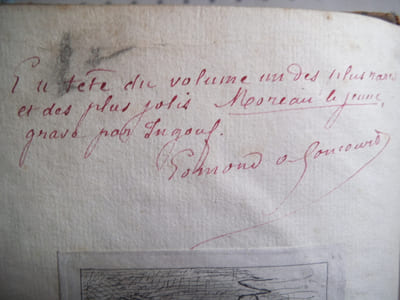 En tête du volume un des plus rares
et des plus jolis Moreau le jeune,
gravé par Ingouf.
Edmond de Goncourt